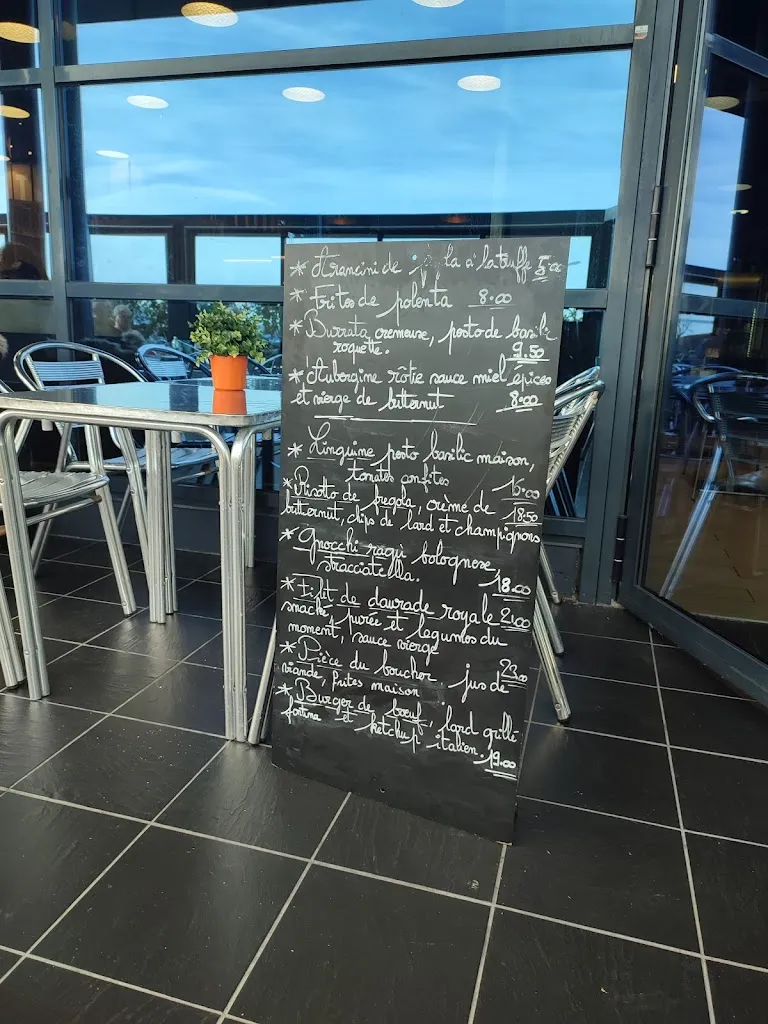 * Arancini de à la truffe
* Frites de polenta 8.00
* Burrata cremeuse, pesto de basilic
roquette. 9.50
* Aubergine rôtie sauce miel épices
et vierge de butternut 8.00
* Linguine pesto basilic maison,
tomates confites
* Risotto de fregola, crème de 18.50
butternut, clips de lard et champignons
* Gnocchi ragù bolognese,
stracciatella. 18.00
* Filet de daurade royale
snacké, purée et legumes du
moment, sauce vierge
* Pièce du boucher. jus de
viande, frites maison
* Burger de bœuf, lard grillé
fontina et ketchup italien. 19.00